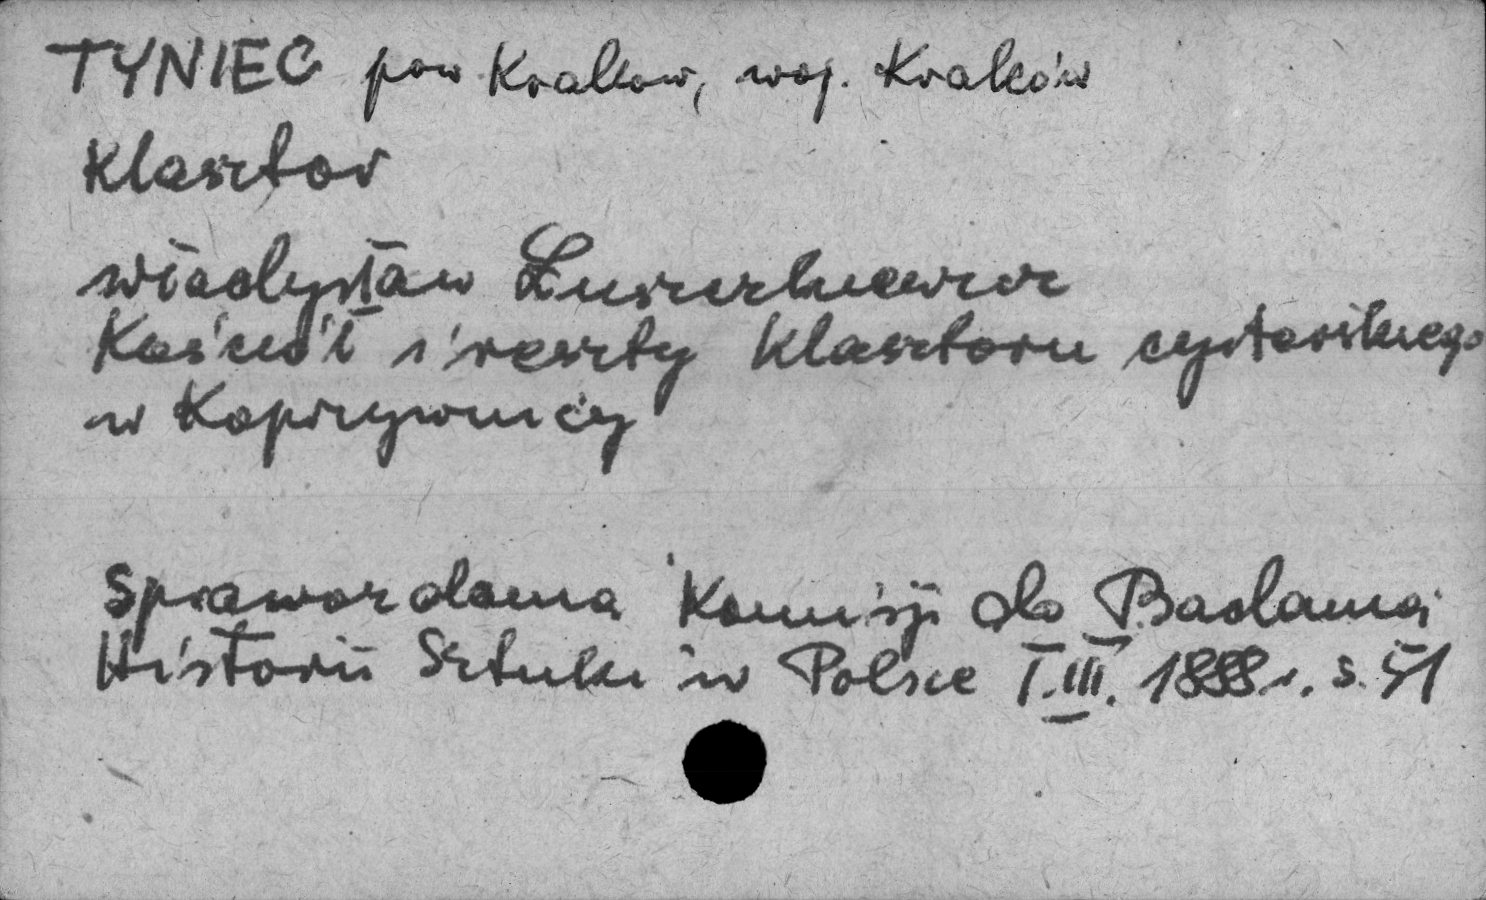 TYNIEC pow Krakow, woj. Kraków
Klasztor
władysław Łuszczkiewicz
Kościół i reszty Klasztoru cysterskiego
w Koprzywnicy
Sprawozdania Komisji do Badania
Historii Sztuki w Polsce T.III. 1888r. s. 51